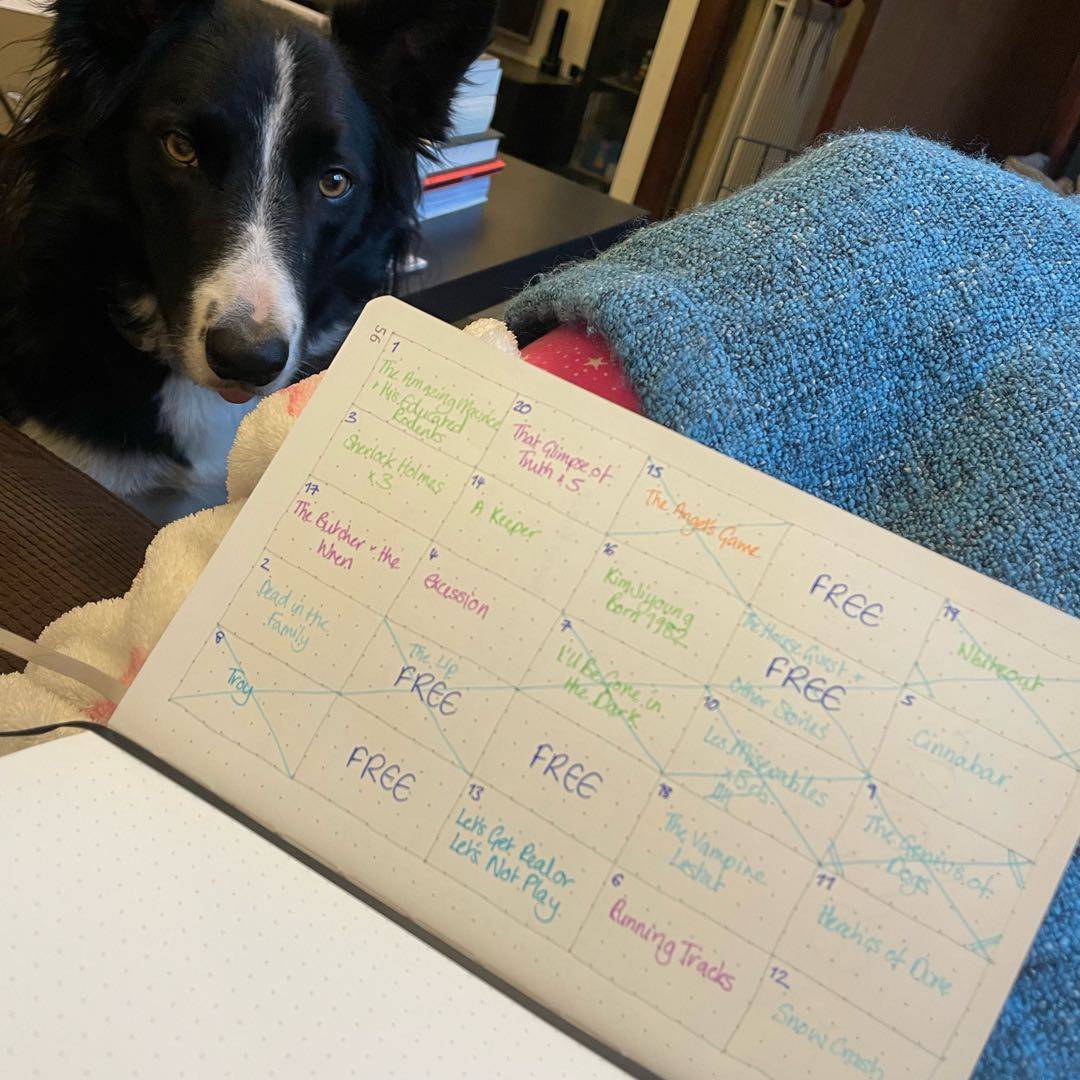 56
1
The Amazing Maurice
+ His Educated
Rodents
20
That Glimpse of
Truth x 5
15
The Angels Game
FREE
19
3
Sherlock Holmes
x 3
14
A Keeper
16
Kim Jiyoung
Born 1982
The House Guest +
FREE
Other Stories
5
Cinnabar
17
The Butcher + the
Wren
4
Excession
7
I'll Be Gone in
the Dark
10
Les Miserables
9
The Genius of
Dogs
2
Dead in the
Family
The Lip
FREE
FREE
18
The Vampire
Lestat
11
of
8
Troy
FREE
13
Let's Get Real or
Let's Not Play
6
Running Tracks
12
Snow Crash